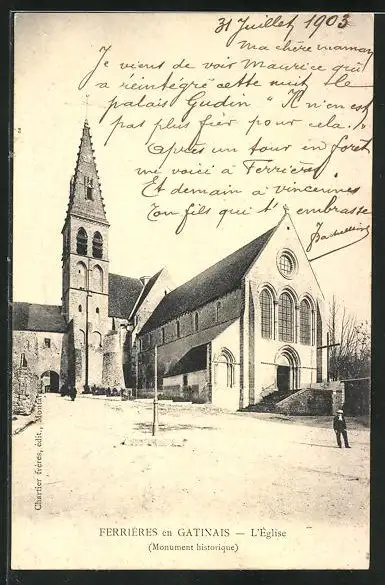 31 Juillet 1903
Ma chère maman
Je viens de voir Maurice qui
a réintégré cette nuit le
palais Gudin " Il n'en est
pas plus fier pour cela. "
Après un tour en forêt
me voici à Ferrières
Et demain à Vincennes
Ton fils qui t'embrasse
FERRIÈRES en GATINAIS — L'Église
(Monument historique)
Chartier frères, édit., Montargis